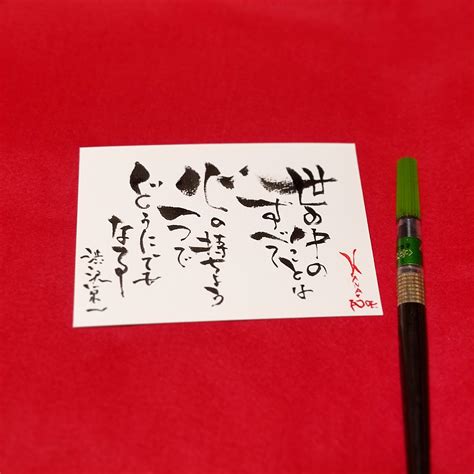 世の中の
ことは
すべて
心の持ちよう
一つで
どうにでも
なる
渋沢栄一